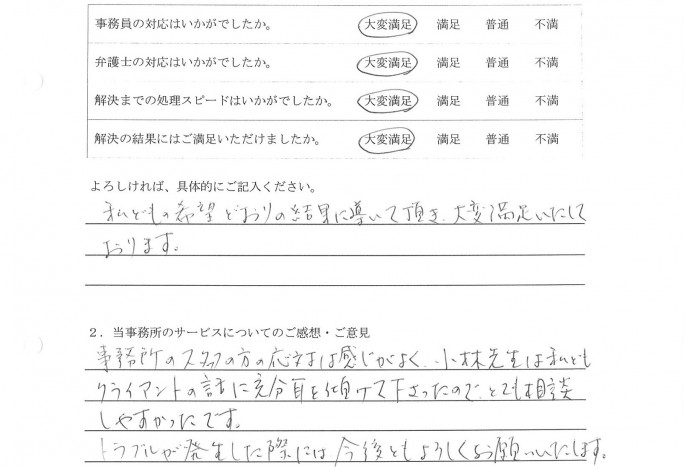 事務員の対応はいかがでしたか。 大変満足 満足 普通 不満
弁護士の対応はいかがでしたか。 大変満足 満足 普通 不満
解決までの処理スピードはいかがでしたか。 大変満足 満足 普通 不満
解決の結果にはご満足いただけましたか。 大変満足 満足 普通 不満
よろしければ、具体的にご記入ください。
私どもの希望どおりの結果に導いて頂き、大変満足いたして
おります。
2．当事務所のサービスについてのご感想・ご意見
事務所の の方の応対は感じがよく、小林先生は私ども
クライアントの話に充分耳を傾けて下さったので、とても相談
しやすかったです。
トラブルが発生した際には今後ともよろしくお願いいたします。